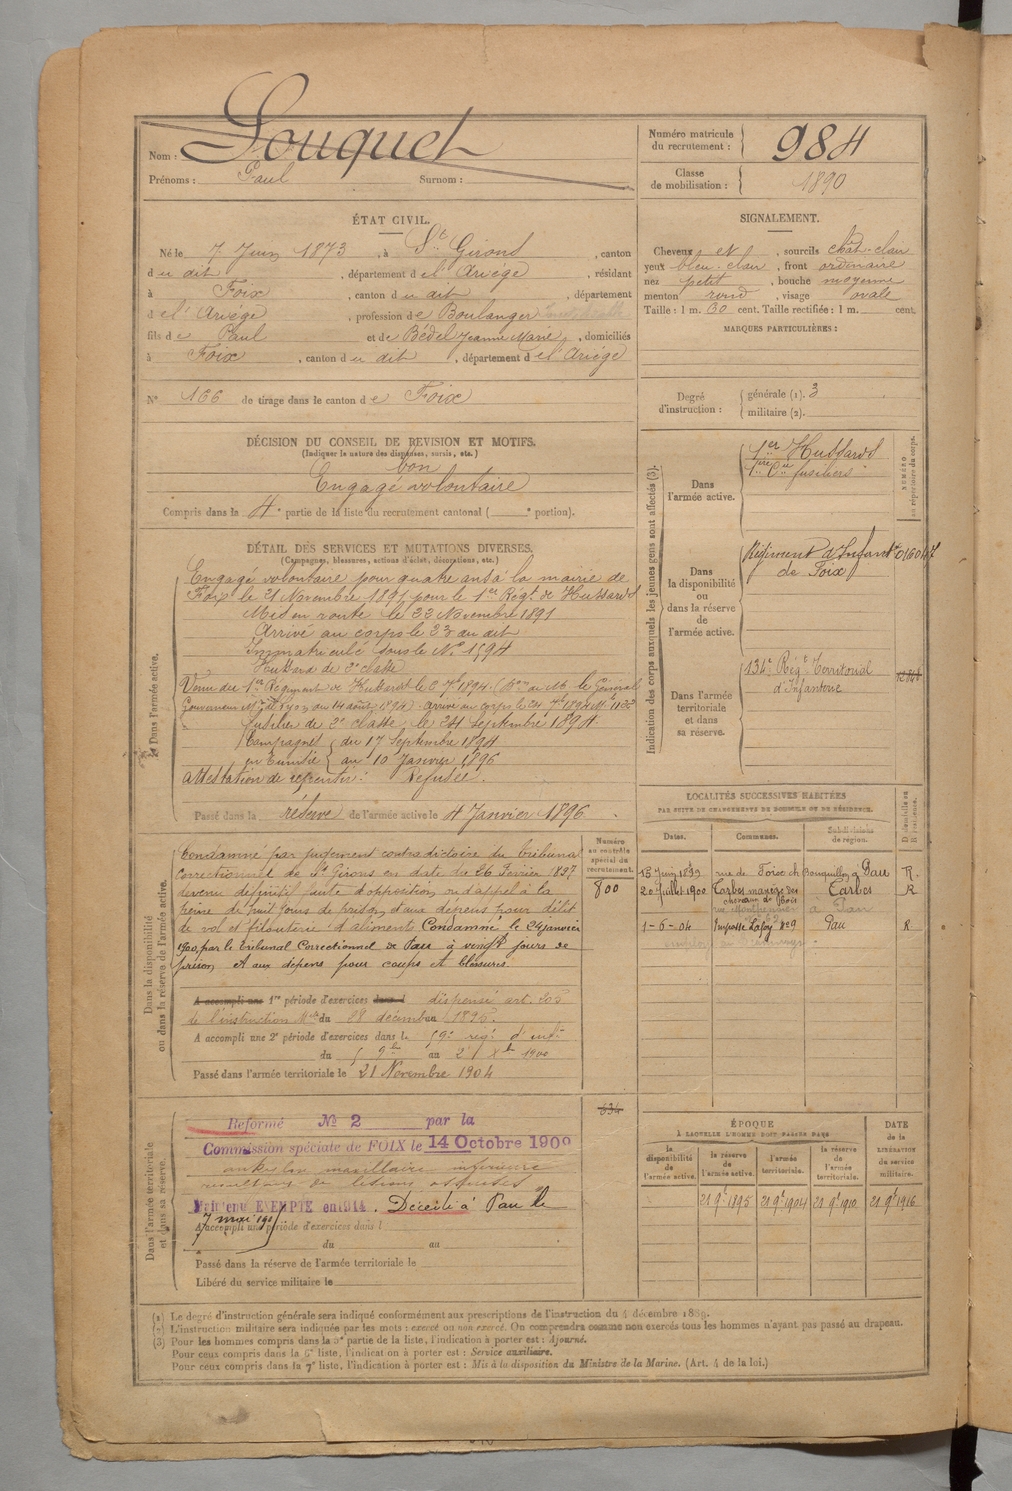 Nom : Louquet
Prénoms : Paul Surnom :
Numéro matricule du recrutement : 984
Classe de mobilisation : 1890
ÉTAT CIVIL.
Né le 7 Juin 1873, à St Girons, canton
du dit, département de l'Ariège, résidant
à Foix, canton du dit, département
de l'Ariège, profession de Boulanger
fils de Paul et de Bédel Jeanne Marie, domiciliés
à Foix, canton du dit, département de l'Ariège
N° 166 de tirage dans le canton de Foix
DÉCISION DU CONSEIL DE REVISION ET MOTIFS.
(Indiquer la nature des dispenses, sursis, etc.)
bon
Engagé volontaire
Compris dans la 4e partie de la liste du recrutement cantonal ( e portion).
SIGNALEMENT.
Cheveux et, sourcils chât-clair
yeux bleu-clair, front ordinaire
nez petit, bouche moyenne
menton rond, visage ovale
Taille : 1 m. 60 cent. Taille rectifiée : 1 m. cent.
MARQUES PARTICULIÈRES :
Degré d'instruction : générale (1). 3
militaire (2).
DÉTAIL DES SERVICES ET MUTATIONS DIVERSES.
(Campagnes, blessures, actions d'éclat, décorations, etc.)
Dans l'armée active.
Engagé volontaire pour quatre ans à la mairie de
Foix le 21 Novembre 1891 pour le 1er Régt de Hussards
Mis en route le 22 Novembre 1891
Arrivé au corps le 23 du dit
Immatriculé sous le N° 1594
Hussard de 2e classe
Venu du 1er Régiment de Hussards le 1894. le Général
Gouverneur Mre de Lyon du 14 août 1894. Arrivé au corps le 24 7bre 1894
fusilier de 2e classe, le 24 Septembre 1894
Campagnes en Tunisie du 17 Septembre 1894
au 10 Janvier 1896
Attestation de repentir : Refusée.
Passé dans la réserve de l'armée active le 4 Janvier 1896.
Indication des corps auxquels les jeunes gens sont affectés (3).
NUMÉRO au répertoire du corps.
Dans l'armée active.
1er Hussards
1ère Cie fusiliers
Dans la disponibilité ou dans la réserve de l'armée active.
Régiment d'Infant
de Foix
Dans l'armée territoriale et dans sa réserve.
134e Régt Territorial
d'Infanterie
Dans la disponibilité ou dans la réserve de l'armée active.
Condamné par jugement contradictoire du tribunal
correctionnel de St Girons en date du 26 Février 1897
devenu définitif faute d'opposition ou d'appel à la
peine de huit jours de prison et aux dépens pour délit
de vol et filouterie d'aliments Condamné le 24 janvier
1900, par le tribunal Correctionnel de Pau à vingt jours de
prison et aux dépens pour coups et blessures.
Numéro au contrôle spécial du recrutement.
800
A accompli une 1re période d'exercices dans l dispensé art. 203
de l'instruction Mre du 28 décembre 1895.
A accompli une 2e période d'exercices dans l 59e rég. d'inf
du 5 9bre au 2 Xbre 1900
Passé dans l'armée territoriale le 21 Novembre 1904
LOCALITÉS SUCCESSIVES HABITÉES
PAR SUITE DE CHANGEMENTS DE DOMICILE OU DE RÉSIDENCE.
Dates. Communes. Subdivisions de région. D domicile ou R résidence.
15 Juin 1899 rue de Foix ch Bouquillon Pau R.
20 Juillet 1900 Tarbes manège des chevaux de bois Tarbes R
à Pau
1-6-04 Impasse Lafoy n° 9 Pau R
Dans l'armée territoriale et dans sa réserve.
634
Réformé N° 2 par la
Commission spéciale de FOIX le 14 Octobre 1909
ankylose maxillaire inférieure
résultant de lésions osseuses
Maintenu EXEMPTÉ en 1914. Décédé à Pau le
7 mai
A accompli une période d'exercices dans l
du au
Passé dans la réserve de l'armée territoriale le
Libéré du service militaire le
ÉPOQUE
À LAQUELLE L'HOMME DOIT PASSER DANS
la disponibilité de l'armée active. la réserve de l'armée active. l'armée territoriale. la réserve de l'armée territoriale.
DATE de la LIBÉRATION du service militaire.
21 9e 1895 21 9e 1904 21 9e 1910 21 9e 1916
(1) Le degré d'instruction générale sera indiqué conformément aux prescriptions de l'instruction du 4 décembre 1889.
(2) L'instruction militaire sera indiquée par les mots : exercé ou non exercé. On comprendra comme non exercés tous les hommes n'ayant pas passé au drapeau.
(3) Pour les hommes compris dans la 5e partie de la liste, l'indication à porter est : Ajourné.
Pour ceux compris dans la 6e liste, l'indication à porter est : Service auxiliaire.
Pour ceux compris dans la 7e liste, l'indication à porter est : Mis à la disposition du Ministre de la Marine. (Art. 4 de la loi.)